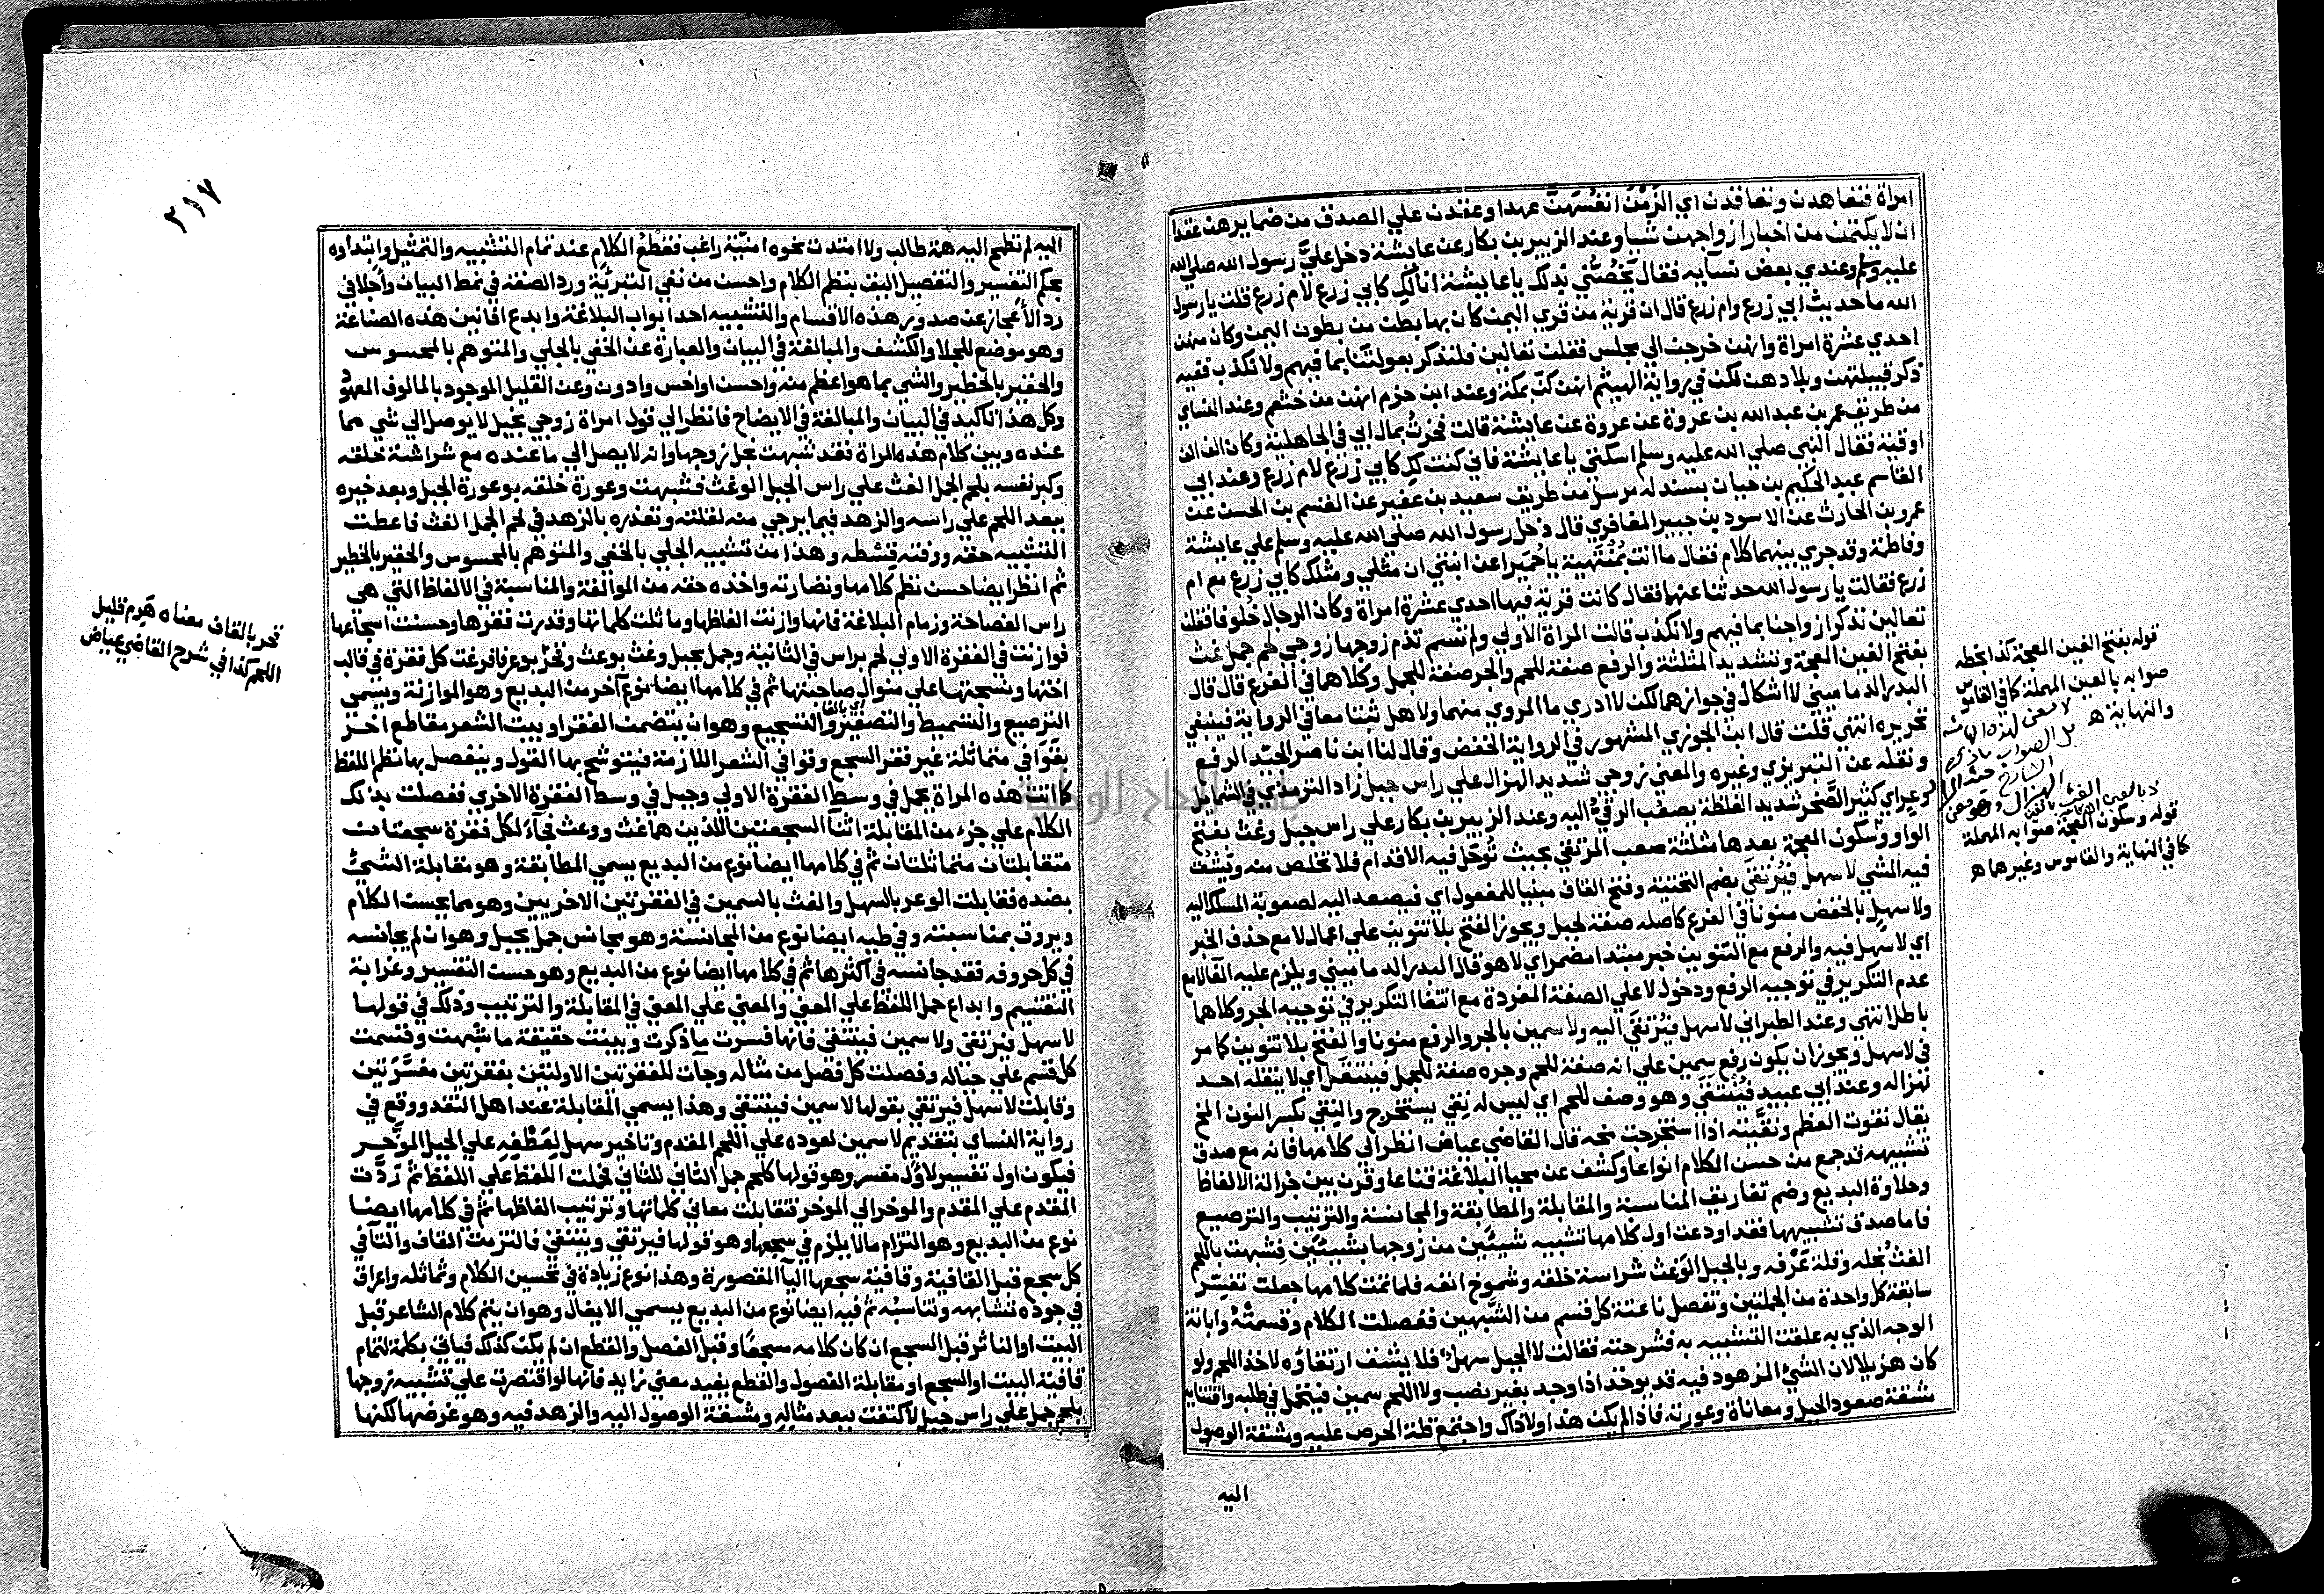 امراة فتعاهدن وتعاقدن اي الزمن انفسهن عهدا وعقدن علي الصدق من ضمايرهن عقدا
ان لا يكتمن من اخبار ازواجهن شيا وعند الزبير بن بكار عن عايشة دخل عليّ رسول الله صلي الله
عليه وسلم وعندي بعض نسآيه فقال يخصّني بذلك يا عايشة انا لك كابي زرع لام زرع قلت يا رسول
الله ما حديث ابي زرع وام زرع قال ان قرية من قري اليمن كان بها بطن من بطون اليمن وكان منهن
احدي عشرة امراة وانهن خرجن الي مجلس فقلن تعالين فلنذكر بعولتنا بما فيهم ولا نكذب ففيه
ذكر قبيلتهن وبلادهن لكن في رواية الهيثم انهن كنّ بمكة وعند ابن حزم انهن من خثعم وعند النساي
من طريق عمر بن عبد الله بن عروة عن عروة عن عايشة قالت فخرتُ بمال ابي في الجاهلية وكان الف الف
اوقية فقال النبي صلي الله عليه وسلم اسكتي يا عايشة فاني كنت لك كابي زرع لام زرع وعند ابي
القاسم عبد الحكيم بن حيان بسند له مرسل من طريق سعيد بن عفير عن القسم بن الحسن عن
عمرو بن الحارث عن الاسود بن جبير المغافري قال دخل رسول الله صلي الله عليه وسلم علي عايشة
وفاطمة وقد جري بينهما كلام فقال ما انت بمنتهية يا حُميرا عن ابنتي ان مثلي ومثلك كابي زرع مع ام
زرع فقالت يا رسول الله حدثنا عنهما فقال كانت قرية فيها احدي عشرة امراة وكان الرجال خُلوفا فقلن
تعالين نذكر ازواجنا بما فيهم ولا نكذب قالت المراة الاولي ولم تسم تذم زوجها زوجي لحم جمل غث
بفتح الغين المعجمة وتشديد المثلثة والرفع صفة للحم والجر صفة للجمل وكلاهما في الفرع قال قال
البدر الدماميني لا اشكال في جوازهما لكن لا ادري ما المروي منهما ولا هل ثبتا معا في الرواية فينبغي
تحريره انتهي قلت قال ابن الجوزي المشهور في الرواية الخفض وقال لنا ابن ناصر الجيّد الرفع
ونقله عن التبريزي وغيره والمعني زوجي شديد الهزال علي راس جبل زاد الترمذي في الشمايل
وعر اي كثير الصَّخر شديد الغلظة يصعُب الرقيُّ اليه وعند الزبير بن بكار علي راس جبل وعْث بفتح
الواو وسكون المعجمة بعدها مثلثة صعب المرتقي بحيث تُوحَل فيه الاقدام فلا تخلص منه ويشُق
فيه المشي لا سهل فيُرتقَي بضم التحتية وفتح القاف مبنيا للمفعول اي فيصعد اليه لصعوبة المسلك اليه
ولا سهلٍ بالخفض منونا في الفرع كاصله صفة لجبل ويجوز الفتح بلا تنوين علي اعمال لا مع حذف الخبر
اي لا سهل فيه والرفع مع التنوين خبر مبتدا مضمر اي لا هو قال البدر الدماميني ويلزم عليه الغآ لا مع
عدم التكرير في توجيه الرفع ودخول لا علي الصفة المفردة مع انتفا التكرير في توجيه الجر وكلاهما
باطل انتهي وعند الطبراني لا سهل فيُرتقَي اليه ولا سمين بالجر والرفع منونا والفتح بلا تنوين كما مر
في لا سهل ويجوز ان يكون رفع سمين علي انه صفة للحم وجره صفة للجمل فيُنتقل اي لا ينقله احد
لهزاله وعند ابي عبيد فيُنتقَي وهو وصف للحم اي ليس له نِقي يستخرج والنِقي بكسر النون المخ
يقال نقوت العظم ونقيته اذا استخرجت مخه قال القاضي عياض انظر الي كلامها فانه مع صدق
تشبيهه قد جمع من حسن الكلام انواعا وكشف عن محيا البلاغة قناعا وقرن بين جزالة الالفاظ
وحلاوة البديع وضم تفاريق المناسبة والمقابلة والمطابقة والمجانسة والترتيب والترصيع
فاما صدق تشبيهها فقد اودعت اول كلامها تشبيه شيئين من زوجها بشيئين فشبهت باللحم
الغث بُخله وقلة عَرْفه وبالجبل الوَعْث شراسة خلقه وشموخ انفه فلما تمت كلامها جعلت تفسّر
سابقة كل واحدة من الجملتين وتفصل ناعتة كل قسم من الشبهين ففصلت الكلام وقسمتْهُ وابانة
الوجه الذي به علقت التشبيه به فشرحته فقالت لا الجبل سهل فلا يشف ارتقآؤه لاخذ اللحم ولو
كان هزيلا لان الشئ المزهود فيه قد يوخذ اذا وجد بغير نصب ولا اللحم سمين فيتحمل في طلبه واقتنايه
مشقة صعود الجبل ومعاناة وعورته فاذا لم يكن هذا ولا ذاك واجتمع قلة الحرص عليه ومشقة الوصول
اليه
قوله بفتح الغين المعجمة كذا بخطه
صوابه بالعين المهملة كما في القاموس
والنهاية هـ
قوله وسكون المعجمة صوابه المهملة
كما في النهاية والقاموس وغيرهما هـ
٢١٧
اليه لم تطمح اليه همة طالب ولا امتدت نحوه امنيّة راغب فقطعُ الكلام عند تمام التشبيه والتمثيل وابتداوه
بحكم التفسير والتفصيل اليق بنظم الكلام واحسن من نفي التبرئة ورد الصفة في نمط البيان واجلا في
رد الأعجاز عن صدوير هذه الاقسام والتشبيه احد ابواب البلاغة وابدع افانين هذه الصناعة
وهو موضع للجلا والكشف والمبالغة في البيان والعبارة عن الخفي بالجلي والمتوهم بالمحسوس
والحقير بالخطير والشي بما هو اعظم منه واحسن او اخس وادون وعن القليل الوجود بالمالوف المعهود
وكل هذا تاكيد في البيان والمبالغة في الايضاح فانظر الي قول امراة زوجي بخيل لا يوصل الي شي مما
عنده وبين كلام هذه المراة فقد شبهت بخل زوجها وانه لا يصل الي ما عنده مع شراشة خلقه
وكبر نفسه بلحم الجمل الغث علي راس الجبل الوعْث فشبهت وعورة خلقه بوعورة الجبل وبعد خيره
ببعد اللحم علي راسه والزهد فيما يرجي منه لقلته وتعذره بالزهد في لحم الجمل الغث فاعطت
التشبيه حقه ووفته قسطه وهذا من تشبيه الجلي بالخفي والمتوهم بالمحسوس والحقير بالخطير
ثم انظر ايضا حسن نظم كلامها ونضارته واخذه حقه من الموالفة والمناسبة في الالفاظ التي هي
راس الفصاحة وزمام البلاغة فانها وازنت الفاظها وماثلت كلماتها وقدرت فقرها وحسنت اسجاعها
فوازنت في الفقرة الاولي لحم براس في الثانية وجمل بجبل وغث بوعث ونخر بوعر فافرغت كل فقرة في قالب
اختها ونسجتها علي منوال صاحبتها ثم في كلامها ايضا نوع آخر من البديع وهو الموازنة ويسمي
الترصيع والتسميط والتصفير والتسجيع وهو ان يتضمن الفقر او بيت الشعر مقاطع اخر
بقوافي متماثلة غير فقر السجع وقوافي الشعر اللازمة فيتوشح بها القول وينفصل بها نظم اللفظ
كما اتت هذه المراة بجمل في وسط الفقرة الاولي وجبل في وسط الفقرة الاخري ففصلت بذلك
الكلام علي جزء من المقابلة اثنآ السجعتين اللذين هما غث ووعث فجآء لكل فقرة سجعتان
متقابلتان متماثلتان ثم في كلامها ايضا نوع من البديع يسمي المطابقة وهو مقابلة الشيءُ
بضده فقابلت الوعر بالسهل والغث بالسمين في الفقرتين الاخريين وهو مما يحسن الكلام
ويروق بمناسبته وفي طيه ايضا نوع من المجانسة وهو يجانس جمل بجبل وهو ان لم يجانسه
في كل حروفه فقد جانسه في اكثرها ثم في كلامها ايضا نوع من البديع وهو حسن التفسير وغرابة
التقسيم وابداع حمل اللفظ علي المعني والمعني علي المعني في المقابلة والترتيب وذلك في قولها
لا سهل فيرتقي ولا سمين فينتقي فانها فسرت ما ذكرت وبينت حقيقة ما شبهت وقسمت
كل قسم علي حياله وفصلت كل فصل من مثاله وجآت للفقرتين الاولتين بفقرتين مفسَّرتين
وقابلت لا سهل فيرتقي بقولها لا سمين فينتقي وهذا يسمي المقابلة عند اهل النقد ووقع في
رواية النساي بتقديم لا سمين لعوده علي اللحم المقدم وتاخير سهل لعَطْفِهِ علي الجبل المؤخر
فيكون اول تفسير لاول مفسر وهو قولها كلحم جمل الثاني للثاني فحملت اللفظ علي اللفظ ثم ردَّت
المقدم علي المقدم والموخر الي الموخر فتقابلت معاني كلماتها وترتيب الفاظها ثم في كلامها ايضا
نوع من البديع وهو التزام ما لا يلزم في سجعها وهو قولها فيرتقي وينتقي فالتزمت القاف والتآ في
كل سجع قبل القافية وقافية سجعها اليآ المقصورة وهذا نوع زيادة في تحسين الكلام وتماثله واغراق
في جوده تشابهه وتناسبه ثم فيه ايضا نوع من البديع يسمي الايغال وهو ان يتم كلام الشاعر قبل
البيت او الناثر قبل السجع ان كان كلامه مسجعًا وقبل الفصل والقطع ان لم يكن كذلك فياتي بكلمة لتمام
قافية البيت او السجع او مقابلة الفصول والقطع يفيد معني زايد فانها لو اقتصرت علي تشبيه زوجها
بلحم جمل علي راس جبل لاكتفت ببعد مثاله ومشقة الوصول اليه والزهد فيه وهو غرضها لكنها
قحر بالقاف معناه هَرِم قليل
اللحم كذا في شرح القاضي عياض